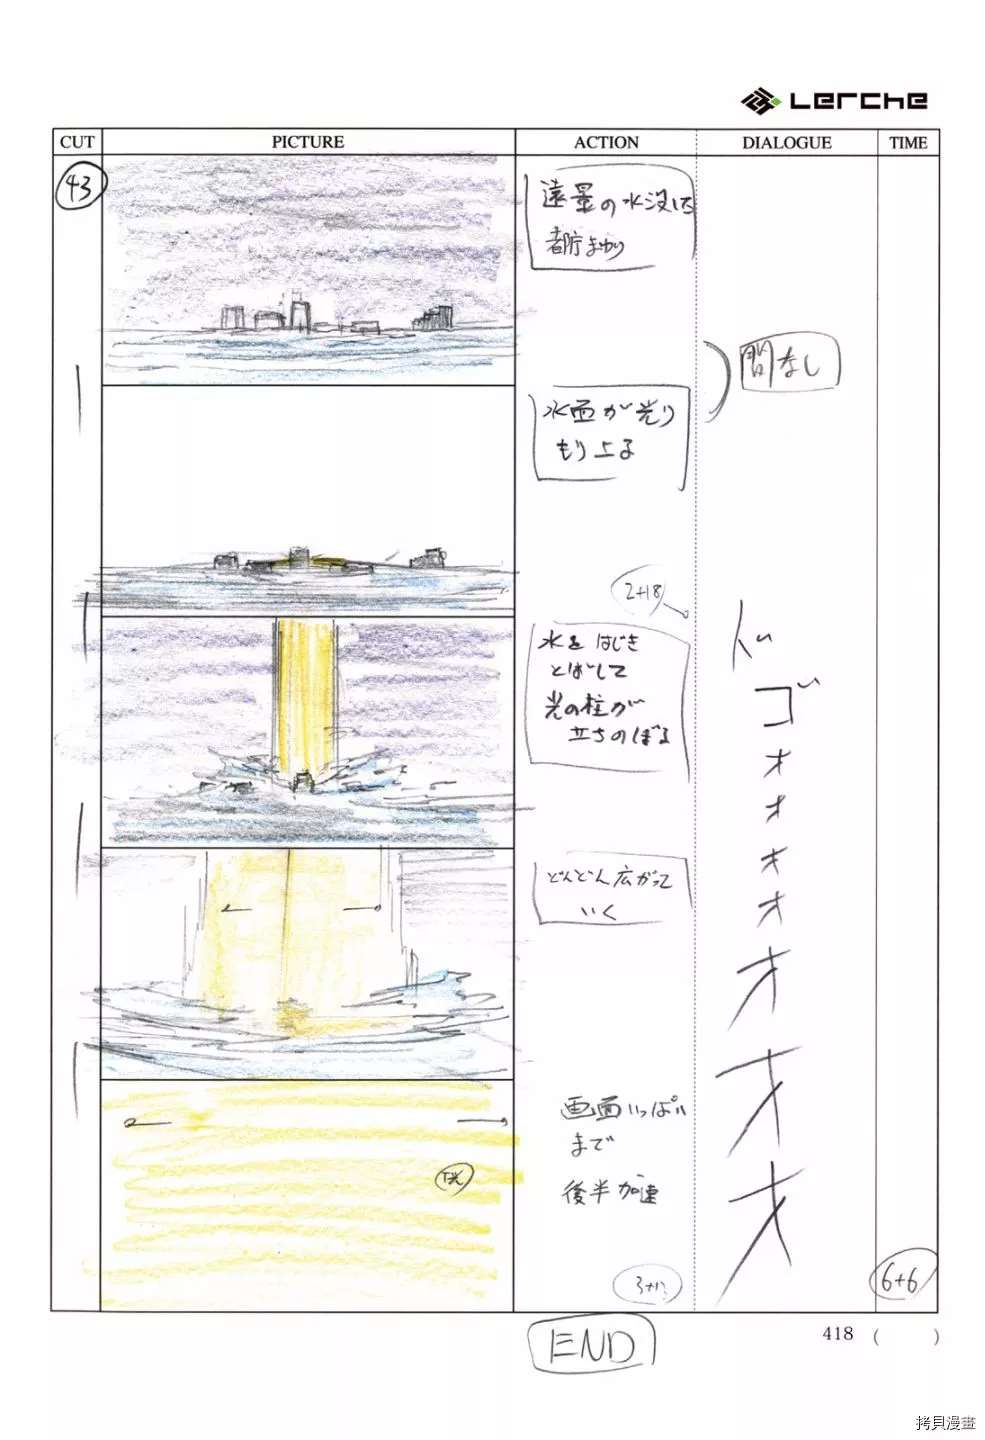 Lerche
CUT PICTURE ACTION DIALOGUE TIME
43
遠景の水没した
都庁まわり
音なし
水面が光り
もり上る
2+18
水をはじき
とばして
光の柱が
立ちのぼる
ド
ゴ
オ
オ
オ
オ
オ
オ
オ
どんどん広がって
いく
画面いっぱい
まで
後半加速
T光
6+6
END
418 ( )
拷貝漫畫